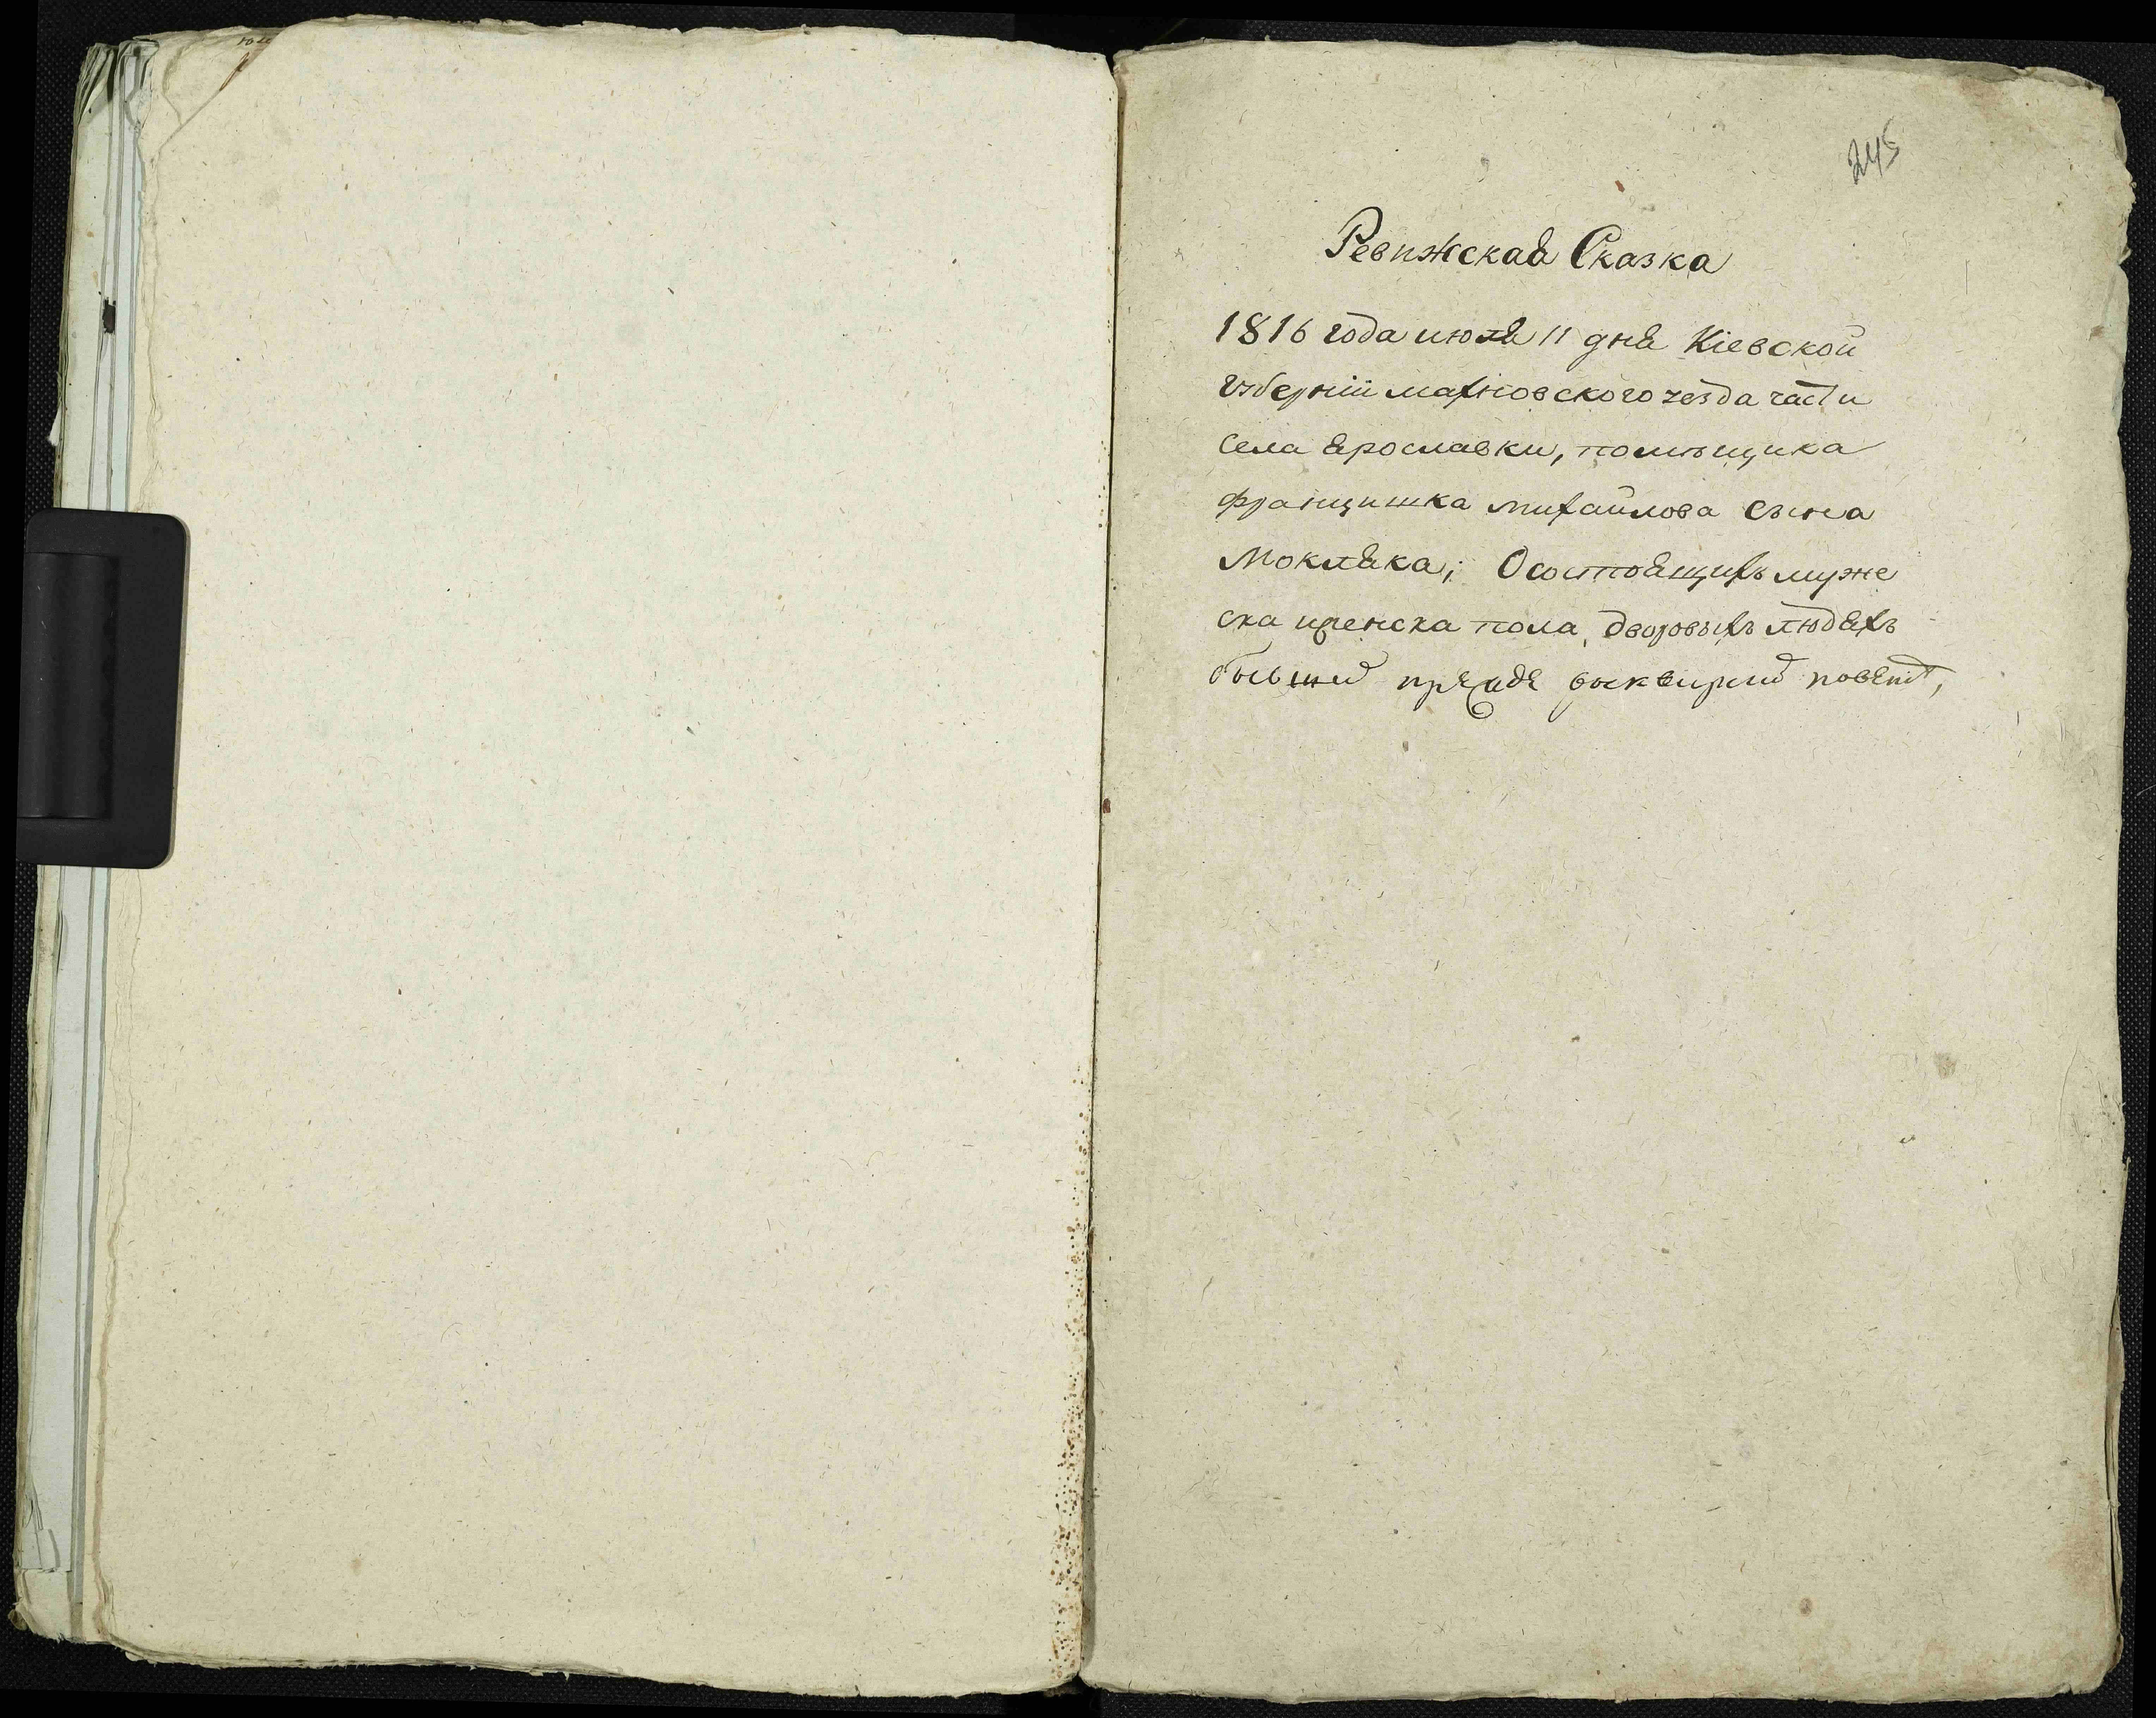 245
Ревижская Сказка
1816 года июля 11 дня Кіевской
Губерніи махновского уезда части
села Ярославки, помѣщика
францишка михайлова сына
Мокляка; О состоящихъ муже
ска иженска пола, дворовыхъ людяхъ
бывшей прежде сквирией повет,